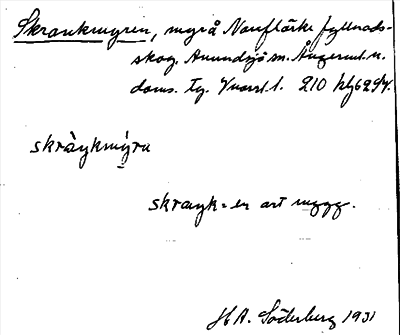 Skrankmyren, myrå Norrflärke fyllnads-
skog. Anundsjö sn. Ångerml. n.
doms. Tg. 210
skràŋkmýrn
skraŋk = en art mygg.
H A. Söderberg 1931